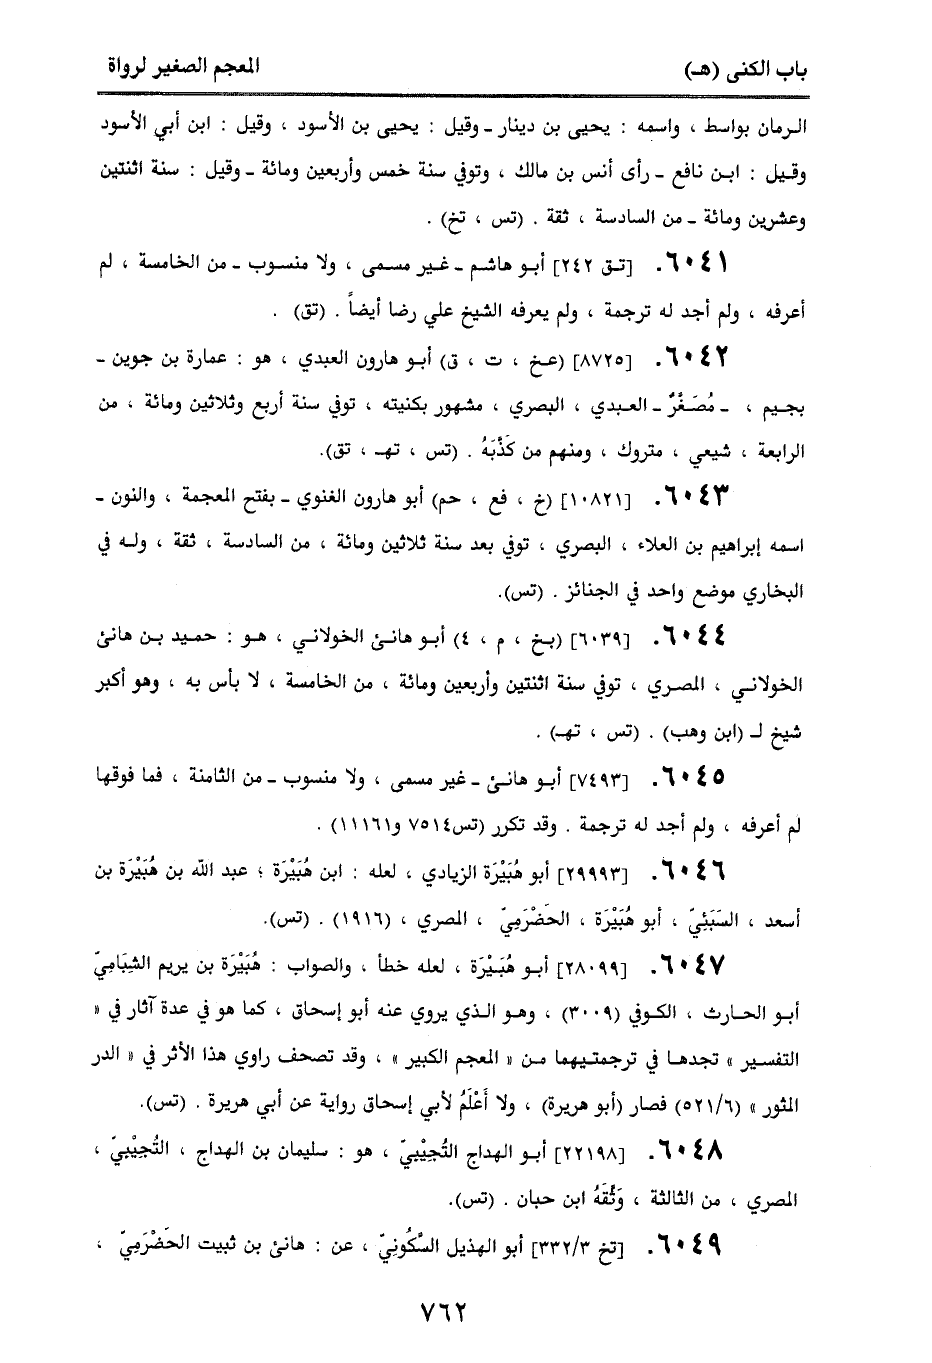 باب الكنى (هـ)
المعجم الصغير لرواة
الرمان بواسط ، واسمه : يحيى بن دينار ـ وقيل : يحيى بن الأسود ، وقيل : ابن أبي الأسود
وقيل : ابن نافع ـ رأى أنس بن مالك ، وتوفي سنة خمس وأربعين ومائة ـ وقيل : سنة اثنتين
وعشرين ومائة ـ من السادسة ، ثقة . (تس ، تخ) .
٦٠٤١. [تق ٢٤٢] أبو هاشم ـ غير مسمى ، ولا منسوب ـ من الخامسة ، لم
أعرفه ، ولم أجد له ترجمة ، ولم يعرفه الشيخ علي رضا أيضاً . (تق) .
٦٠٤٢. [٨٧٢٥] (عخ ، ت ، ق) أبو هارون العبدي ، هو : عمارة بن جوين ـ
بجيم ، ـ مُصَغَّرٌ ـ العبدي ، البصري ، مشهور بكنيته ، توفي سنة أربع وثلاثين ومائة ، من
الرابعة ، شيعي ، متروك ، ومنهم من كَذَّبَهُ . (تس ، تهـ ، تق).
٦٠٤٣. [١٠٨٢١] (خ ، فع ، حم) أبو هارون الغنوي ـ بفتح المعجمة ، والنون ـ
اسمه إبراهيم بن العلاء ، البصري ، توفي بعد سنة ثلاثين ومائة ، من السادسة ، ثقة ، وله في
البخاري موضع واحد في الجنائز . (تس).
٦٠٤٤. [٦٠٣٩] (بخ ، م ، ٤) أبو هانئ الخولاني ، هو : حميد بن هانئ
الخولاني ، المصري ، توفي سنة اثنتين وأربعين ومائة ، من الخامسة ، لا بأس به ، وهو أكبر
شيخ لـ (ابن وهب) . (تس ، تهـ) .
٦٠٤٥. [٧٤٩٣] أبو هانئ ـ غير مسمى ، ولا منسوب ـ من الثامنة ، فما فوقها
لم أعرفه ، ولم أجد له ترجمة . وقد تكرر (تس٧٥١٤ و١١١٦١) .
٦٠٤٦. [٢٩٩٩٣] أبو هُبَيْرَة الزيادي ، لعله : ابن هُبَيْرَة ؛ عبد الله بن هُبَيْرَة بن
أسعد ، السَبَئِيّ ، أبو هُبَيْرَة ، الحَضْرَمِيّ ، المصري ، (١٩١٦) . (تس).
٦٠٤٧. [٢٨٠٩٩] أبو هُبَيْرَة ، لعله خطأ ، والصواب : هُبَيْرَة بن يريم الشِبَامِيّ
أبو الحارث ، الكوفي (٣٠٠٩) ، وهو الذي يروي عنه أبو إسحاق ، كما هو في عدة آثار في «
التفسير » تجدها في ترجمتيهما من « المعجم الكبير » ، وقد تصحف راوي هذا الأثر في « الدر
المثور » (٥٢١/٦) فصار (أبو هريرة) ، ولا أَعْلَمُ لأبي إسحاق رواية عن أبي هريرة . (تس).
٦٠٤٨. [٢٢١٩٨] أبو الهداج التُجِيْبِيّ ، هو : سليمان بن الهداج ، التُجِيْبِيّ ،
المصري ، من الثالثة ، وَثَّقَهُ ابن حبان . (تس).
٦٠٤٩. [تخ ٣٣٢/٣] أبو الهذيل السَّكُونِيّ ، عن : هانئ بن ثبيت الحَضْرَمِيّ ،
٧٦٢